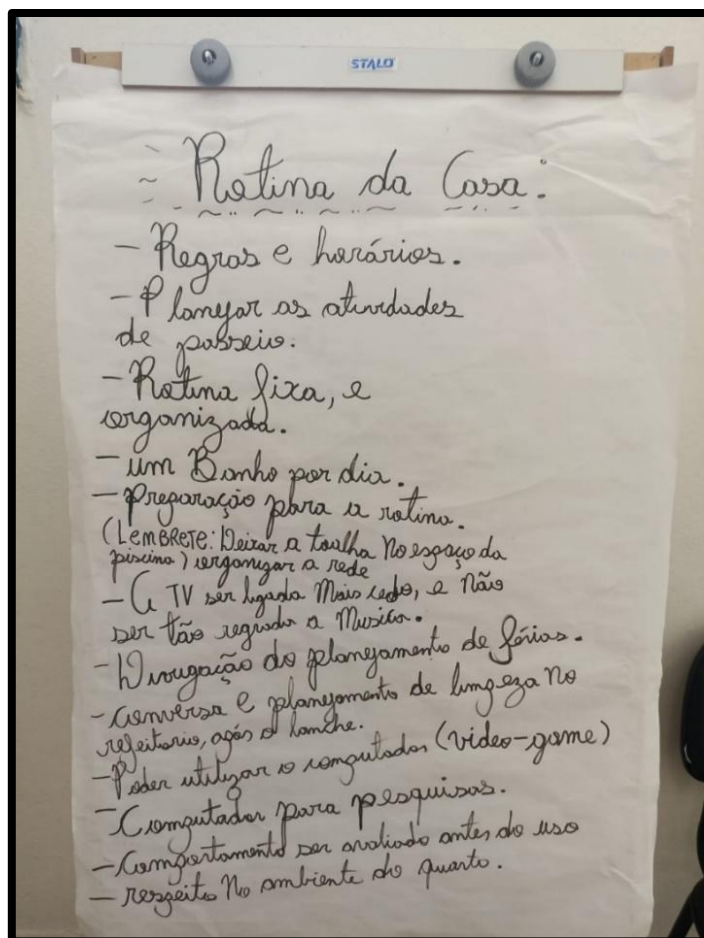 STALO
Rotina da Casa:
- Regras e horários.
- Planejar as atividades
de passeio.
- Rotina fixa, e
organizada.
- um Banho por dia.
- Preparação para a rotina.
(LEMBRETE: Deixar a toalha No espaço da
piscina) organizar a rede
- A TV ser ligada Mais cedo, e Não
ser tão regrada a Musica.
- Divugação do planejamento de férias.
- Conversa e planejamento de limpeza No
refeitorio, após o lanche.
- Poder utilizar o computador (video-game)
- Computador para pesquisas.
- Comportamento ser avaliado antes do uso
- respeito No ambiente do quarto.